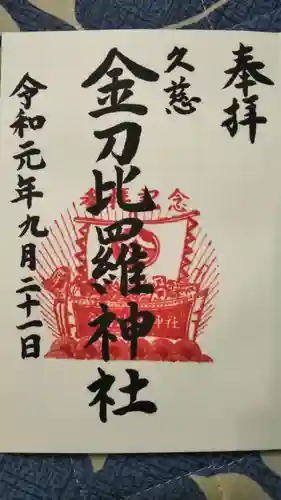 奉拝
久慈
金刀比羅神社
令和元年九月二十一日
参拝記念
神社